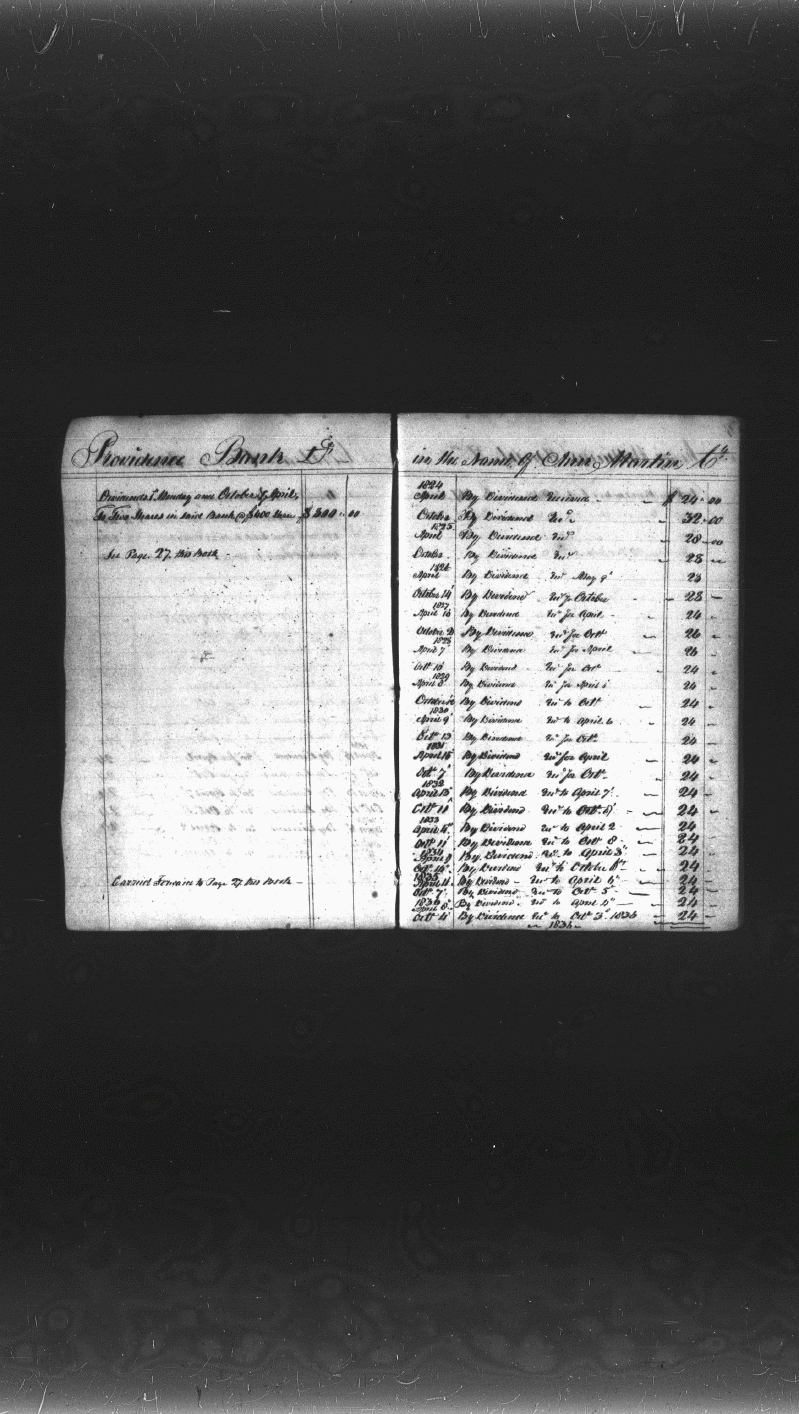 Providence Bank Dr
Dividends 1st Monday and October & April,
To Two Shares in said Bank @ $400 Share, $ 800 . 00
See Page. 27. this Book -
Carried Forward to Page 27 this Book -
in the Name of Ann Martin Cr
1824
April By Dividend - $ 24 . 00
October By Dividend Recd - 32 - 00
1825
April By Dividend Recd - 28 - 00
October By Dividend Recd - 28 -
1826
April By Dividend Recd May 28
Octobr 14 By Dividend Recd for October - 28 -
1827
April By Dividend Recd for April - 24 -
October By Dividend Recd for Octr - 26 -
1828
April 7 By Dividend Recd for April - 26 -
Octr By Dividend Recd for Octr 24 -
1829
April 8 By Dividend Recd for April 24 -
October By Dividend Recd to Octr - 24 -
1830
April 9 By Dividend Recd to April 24 -
Octr 13 By Dividend Recd for Octr - 24 -
1831
April 15 By Dividend Recd for April - 24 -
Octr 7 By Dividend Recd for Octr - 24 -
1832
April 13 By Dividend Recd to April 7 - 24 -
Octr 11 By Dividend Recd to Octr - 24 -
1833
April By Dividend Recd to April 2 - 24
Octr 11 By Dividend Recd to Octr 8 - 24 -
1834
April 9 By Dividend Recd to April - 24 -
Octr By Dividend Recd to October - 24 -
1835
April 11 By Dividend - Recd to April - 24 -
Octr 7 By Dividend Recd to Octr 5 - 24 -
1836
April 8 By Dividend - Recd to April 4 - 24 -
Octr 4 By Dividend Recd to Octr 3 1836 - 24 -
1836